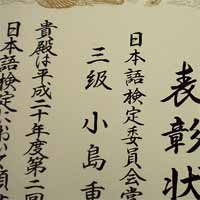 表彰状
日本語検定委員会
三級 小島重
貴殿は平成二十年度第二回
日本語検定において